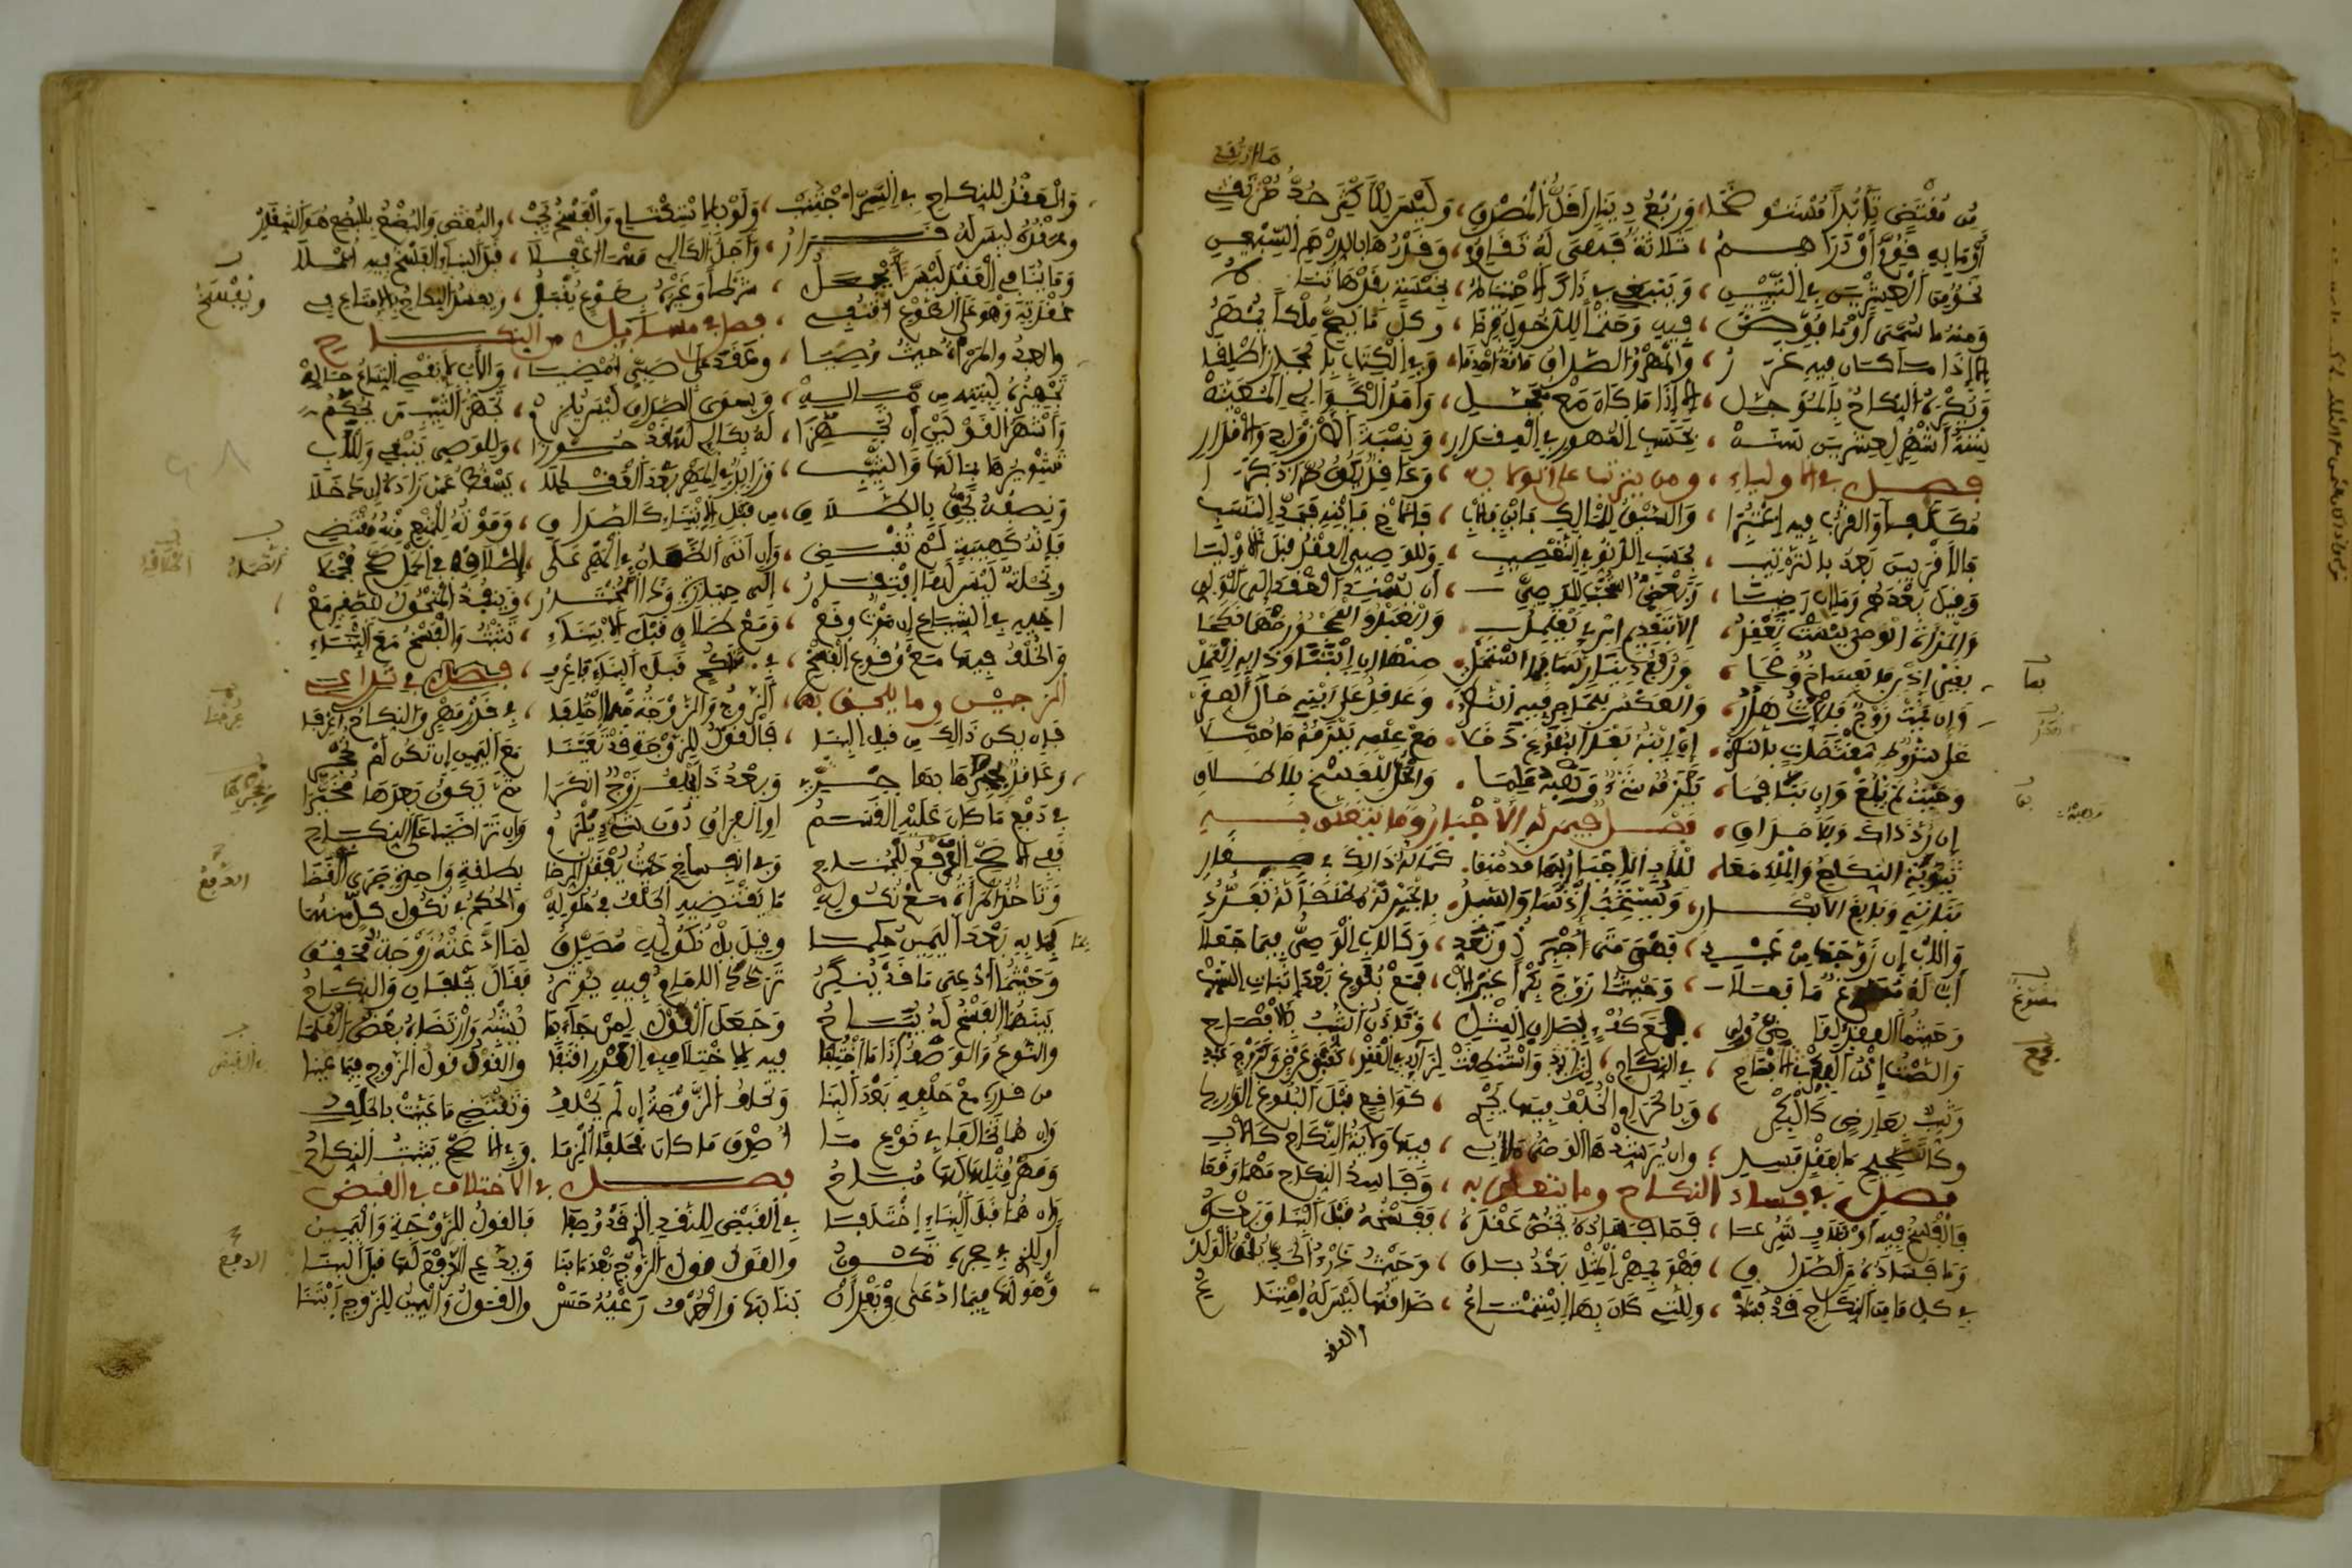 ما ارتقي
من مقتض تأبدا مستوضحا، وربع دينار اقل المصدق، وليس للأكثر حد ما ارتقي
أو ما به قوم أو دراهم، ثلاثة فهي له تقاوم، وقدرها بالدرهم السبعيني
نحو من العشرين في التبيين، وينبغي في ذاك الاحتياط، بخمسة بقدرها تناط
ومنه ما سمي أو ما فوضا، فيه وحتما للدخول فرضا، وكل ما يصح ملكا يمهر
الا اذا ما كان فيه غرر، والمهر والصداق ما قد اصدقا، وفي الكتاب بالمجاز اطلقا
ويكره النكاح بالمؤجل، إلا إذا ما كان مع معجل، وأمد الكوالئ المعينه
ستة أشهر لعشرين سنه، بحسب المهور في المقدار، ونسبة الأزواج والأقدار
فصل في الأولياء، ومن يترتب على الولاية، وعاقد يكون حرا ذكرا
مكلفا والقرب فيه اعتبرا، والسبق للمالك فابن فأب، فالأخ فابنه فجد النسب
فالأقربين بعد بالترتيب، بحسب الدنو في التعصيب، وللوصي العقد قبل الأوليا
وقيل بعدهم وما إن رضيا، وبعض استحب للوصي، أن يسند العقد إلى الولي
والمرأة الوصي ليست تعقد، إلا بتقديم امرئ يعتمد، والعبد والمحجور مهما نكحا
بغير إذن فانفساخ وضحا، وربع دينار لها مما استحل، منه إن ابتنى وذا به العمل
وإن يمت زوج فالإرث هدر، والعكس للحاجر فيه النظر، وعاقد على ابنه حال الصغر
على شروط مقتضاة بالنظر، إن ابنه بعد البلوغ دخلا، مع علمه يلزمه ما حملا
وحيث لم يبلغ وإن بنى فما، يلزمه شيء وهبه علما، والحل للفسخ بلا طلاق
إن رد ذاك وبلا صداق، فصل فيمن له الاجبار وما يتعلق به
ثيوبة النكاح والملك معا، للأب الاجبار بها قد منعا، كما له ذلك في صغار
بناته وبالغ الأبكار، ويستحب إذنها والسيد، بالجبر مطلقا له تفرد
والأب إن زوجها من عبد، فهو متى أجبر ذو تعد، وكالأب الوصي فيما جعلا
أب له مسوغ ما فعلا، وحيثما زوج بكرا غير الأب، فمع بلوغ بعد إثبات السبب
وحيثما العقد لقاض ولي، فمع كفء بصداق المثل، وتأذن الثيب بالإفصاح
والصمت إذن البكر في النكاح، واستنطقت لزائد في العقد، كقبض عرض وكزوج عبد
وثيب بعارض كالبكر، وبالحرام الخلف فيها يجري، كواقع قبل البلوغ الوارد
وكالصحيح ما بعقد فاسد، وإن يرشدها الوصي ما أبي، فيها ولاية النكاح كالأب
فصل في فساد النكاح وما يتعلق به، وفاسد النكاح مهما وقعا
فالفسخ فيه أو تلاف شرعا، فما فساده يخص عقده، ففسخه قبل البنا وبعده
وما فساده من الصداق، فهو بمهر المثل بعد باق، وحيث درء الحد يلحق الولد
في كل ما من النكاح قد فسد، وللتي كان بها استمتاع، صداقها ليس له امتناع
والعقد
والعقد للنكاح في السر اجتنب، ولو بالاستكتام والفسخ يجب، والبضع بالبضع هو الشغار
وعقده ليس له قرار، وأجل الكالي مهما اغفلا، قبل البناء الفسخ فيه اعملا
وما ينافي العقد ليس يجعل، شرطا وغيره بطوع يقبل، ويفسد النكاح بالإمتاع في
عقدته وهو على الطوع اقتفي، فصل في مسائل من النكاح
والعبد والمرأة حيث وصيا، وعقدا على صبي أمضيا، والأب لا يقضي اتساع حاله
تجهيزه لبنته من ماله، وبسوى الصداق ليس يلزم، تجهيز الثيب من يحكم
وأشهر القولين أن تجهزا، له بكالئ لها قد حوزا، وللوصي ينبغي وللأب
تشويرها بمالها والثيب، وزائد في المهر بعد العقد لا، يسقط عما زاده إن دخلا
ونصفه يحق بالطلاق، من قبل الابتناء كالصداق، وموته للمنع منه مقتض
فإنه كهبة لم تقبض، وإن أتى الضمان في المهر على
ونحلة ليس لها افتقار، إلى حيازة وذا المختار، وينفذ المنحول للصغير مع
أخيه في الشياع إن موت وقع، ومع طلاق قبل الابتناء، تثبت والفسخ مع البناء
والخلف فيها مع وقوع الفسخ، في تناكح قبل البناء فاعرف، فصل في تداعي
الزوجين وما يلحق به، الزوج والزوجة مهما اختلفا، في قدر مهر والنكاح اعرفا
فإن يكن ذاك من قبل البنا، فالقول للزوجة قد تعينا مع اليمين إن تكن لم تحجر
وعاقد يحجرها بها حري، وبعد ذا يحلف زوج أنكرا ثم يكون بعدها مخيرا
في دفع ما كان عليه القسم او الفراق دون شيء يلزم وإن تراضيا على النكاح
ففي الأصح الرفع للجناح وفي انفساخ حيث يفقد الرضا بطلقة واحدة جرى القضا
وتأخذ المرأة مع نكوله ما يقتضيه الحلف في حلوله والحكم في نكول كل منهما
بما به بعد اليمين حكما وقيل بل نكوله مصدق لما ادعته زوجة محقق
وحيثما ادعي ما قد ينكر تردد الإمام فيه يؤثر فقال يحلفان والنكاح
بينهما الفسخ له يتاح وجعل القول لمن جاء بما يشبه وارتضاه بعض العلما
والنوع والوصف إذا ما اختلفا فيه للاختلاف في القدر اقتفا والقول قول الزوج فيما عينا
من قدره مع حلفه بعد البنا وتحلف الزوجة إن لم يحلف وتقتضي ما عينت بالحلف
وإن هما تحالفا في نوع ما أصدق ما كان فحلفا ألزما وفي الأصح يثبت النكاح
ومهر مثلها لها مباح فصل في الاختلاف في القبض
وإن هما قبل البناء اختلفا في القبض للنقد الذي قد وصفا فالقول للزوجة واليمين
أو للذي في حجره تكون والقول قول الزوج بعد ما بنا ويدعي الدفع لها قبل البنا
وهو لها فيما ادعى من بعد أن بنا بها والعرف رعيه حسن والقول واليمين للزوج ابتنا